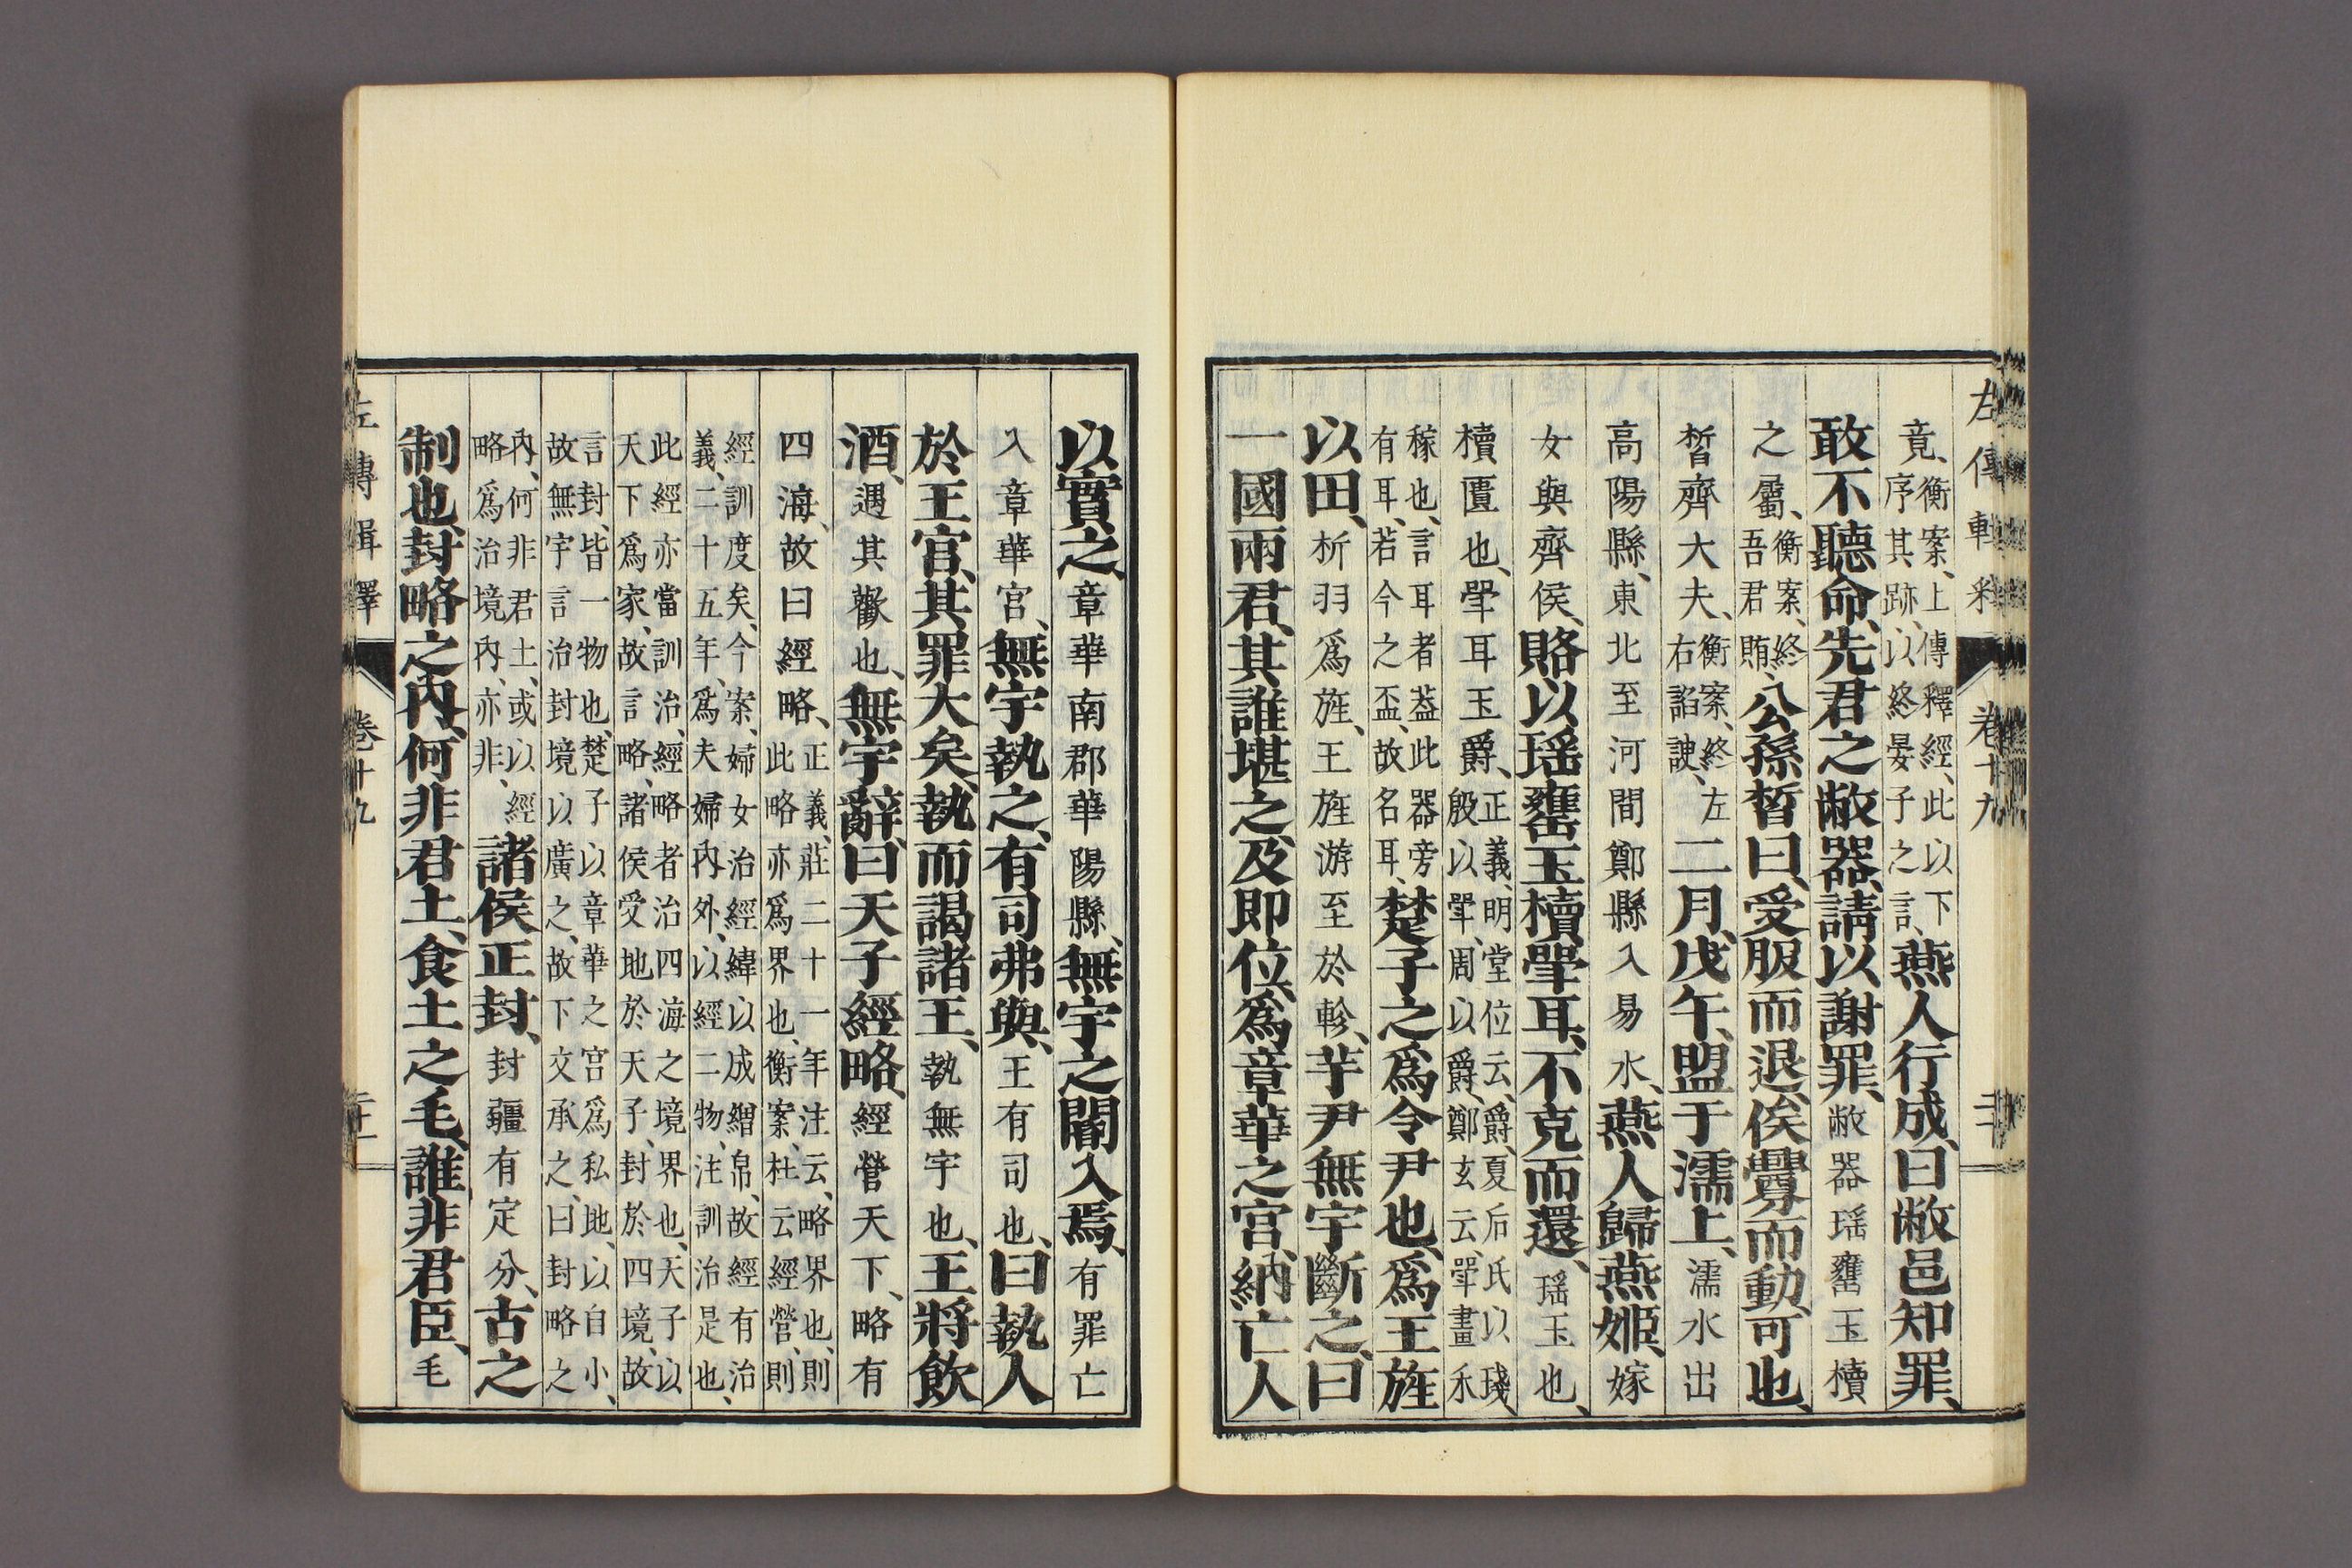 左傳輯釋 卷十九
竟、衡案、上傳釋經、此以下序其跡、以終晏子之言、燕人行成、曰敝邑知罪、
敢不聽命、先君之敝器、請以謝罪、敝器瑶罋玉櫝
之屬、衡案、終吾君賄、公孫晳曰、受服而退、俟釁而動、可也、
晳齊大夫、衡案、終左右諂諛、二月、戊午、盟于濡上、濡水出
高陽縣、東北至河間鄭縣入易水、燕人歸燕姬、嫁
女與齊侯、賂以瑶罋玉櫝斝耳、不克而還、瑶玉也、
櫝匱也、斝耳玉爵、正義、明堂位云、爵、夏后氏以琖、殷以斝、周以爵、鄭玄云、斝畫禾
稼也、言耳者葢此器旁有耳、若今之盃、故名耳、楚子之爲令尹也、爲王旌
以田、析羽爲旌、王旌游至於軫、芋尹無宇斷之、曰
一國兩君、其誰堪之、及即位、爲章華之宮、納亡人
以實之、章華南郡華陽縣、無宇之閽入焉、有罪亡
入章華宮、無宇執之、有司弗與、王有司也、曰執人
於王宮、其罪大矣、執而謁諸王、執無宇也、王將飮
酒、遇其歡也、無宇辭曰天子經略、經營天下、略有
四海、故曰經略、正義、莊二十一年注云、略界也、則此略亦爲界也、衡案、杜云經營、則
經訓度矣、今案、婦女治經緯以成繒帛、故經有治義、二十五年、爲夫婦內外、以經二物、注訓治是也、
此經亦當訓治、經略者治四海之境界也、天子以天下爲家、故言略、諸侯受地於天子、封於四境、故
言封、皆一物也、楚子以章華之宮爲私地、以自小、故無宇言治封境以廣之、故下文承之、曰封略之
內、何非君土、或以經略爲治境內、亦非、諸侯正封、封疆有定分、古之
制也、封略之內、何非君土、食土之毛、誰非君臣、毛
左傳輯釋 卷十九